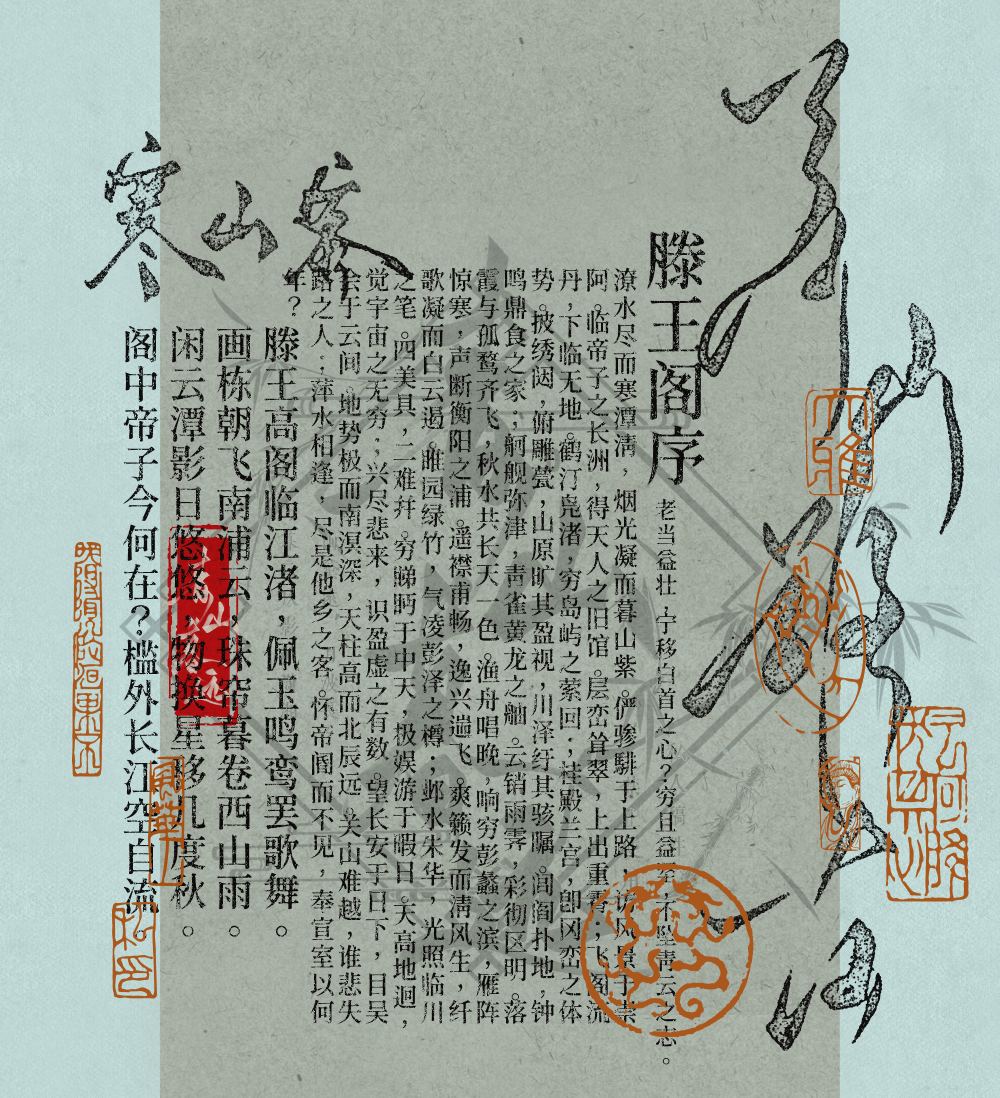 滕王阁序
老当益壮，宁移白首之心？穷且益坚，不坠青云之志。
潦水尽而寒潭清，烟光凝而暮山紫。俨骖騑于上路，访风景于崇
阿。临帝子之长洲，得天人之旧馆。层峦耸翠，上出重霄；飞阁流
丹，下临无地。鹤汀凫渚，穷岛屿之萦回；桂殿兰宫，即冈峦之体
势。披绣闼，俯雕甍，山原旷其盈视，川泽纡其骇瞩。闾阎扑地，钟
鸣鼎食之家；舸舰弥津，青雀黄龙之舳。云销雨霁，彩彻区明。落
霞与孤鹜齐飞，秋水共长天一色。渔舟唱晚，响穷彭蠡之滨，雁阵
惊寒，声断衡阳之浦。遥襟甫畅，逸兴遄飞。爽籁发而清风生，纤
歌凝而白云遏。睢园绿竹，气凌彭泽之樽；邺水朱华，光照临川
之笔。四美具，二难并。穷睇眄于中天，极娱游于暇日。天高地迥，
觉宇宙之无穷；兴尽悲来，识盈虚之有数。望长安于日下，目吴
会于云间。地势极而南溟深，天柱高而北辰远。关山难越，谁悲失
路之人；萍水相逢，尽是他乡之客。怀帝阍而不见，奉宣室以何
年？
滕王高阁临江渚，佩玉鸣鸾罢歌舞。
画栋朝飞南浦云，珠帘暮卷西山雨。
闲云潭影日悠悠，物换星移几度秋。
阁中帝子今何在？槛外长江空自流。
寒山
大雅